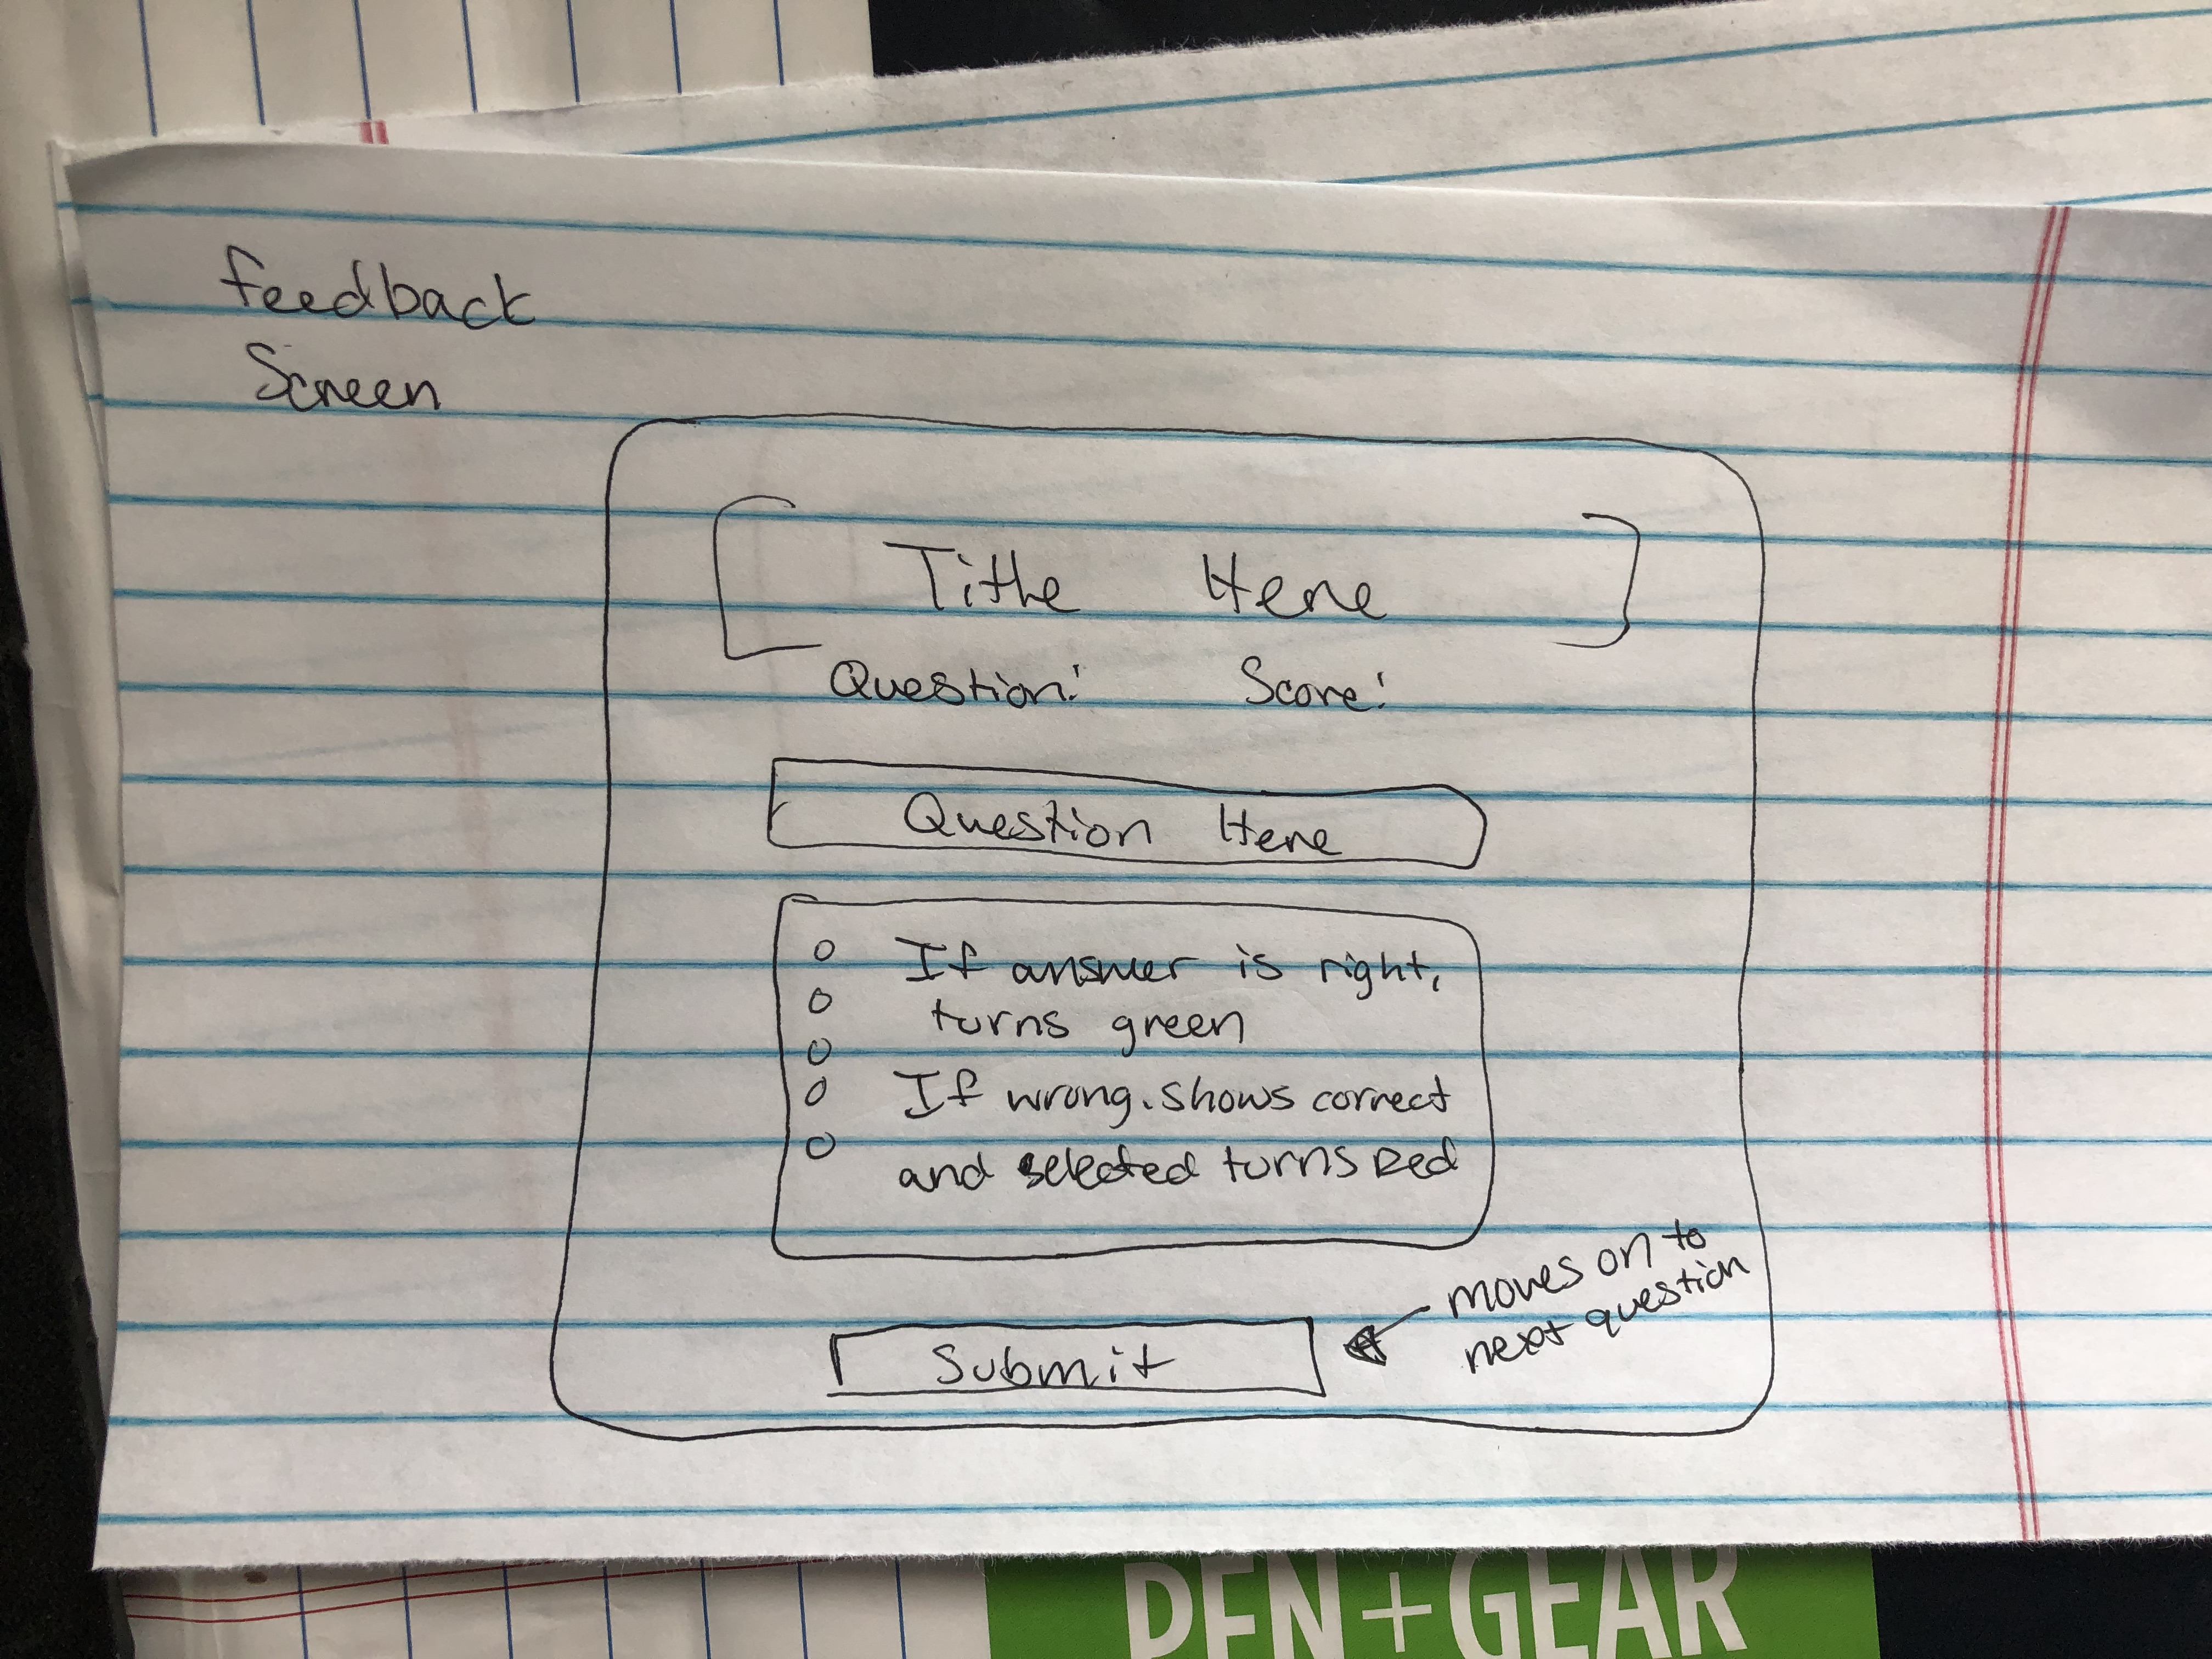 Feedback
Screen
Title Here
Question: Score:
Question Here
If answer is right,
turns green
If wrong, shows correct
and selected turns Red
Submit
moves on to
next question
PEN+GEAR